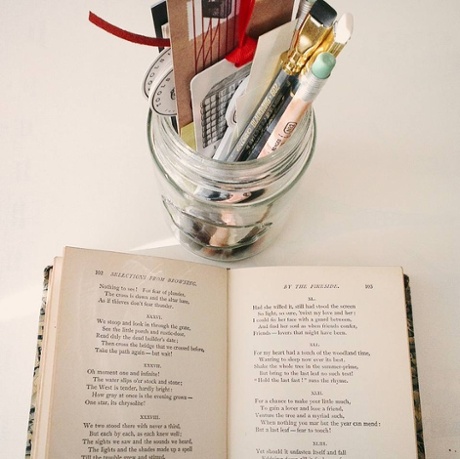 102 SELECTIONS FROM BROWNING.
Nothing to see! For fear of plunder,
The cross is down and the altar bare,
As if thieves don't fear thunder.
XXXVI.
We stoop and look in through the grate,
See the little porch and rustic door,
Read duly the dead builder's date;
Then cross the bridge that we crossed before,
Take the path again—but wait!
XXXVII.
Oh moment one and infinite!
The water slips o'er stock and stone;
The West is tender, hardly bright:
How gray at once is the evening grown—
One star, its chrysolite!
XXXVIII.
We two stood there with never a third,
But each by each, as each knew well:
The sights we saw and the sounds we heard,
The lights and the shades made up a spell
Till the trouble grew and stirred.
BY THE FIRESIDE. 103
XL.
Had she willed it, still had stood the screen
So slight, so sure, 'twixt my love and her:
I could fix her face with a guard between,
And find her soul as when friends confer,
Friends—lovers that might have been.
XLI.
For my heart had a touch of the woodland time,
Wanting to sleep now over its best.
Shake the whole tree in the summer-prime,
But bring to the last leaf no such test!
"Hold the last fast!" runs the rhyme.
XLII.
For a chance to make your little much,
To gain a lover and lose a friend,
Venture the tree and a myriad such,
When nothing you mar but the year can mend:
But a last leaf—fear to touch!
XLIII.
Yet should it unfasten itself and fall